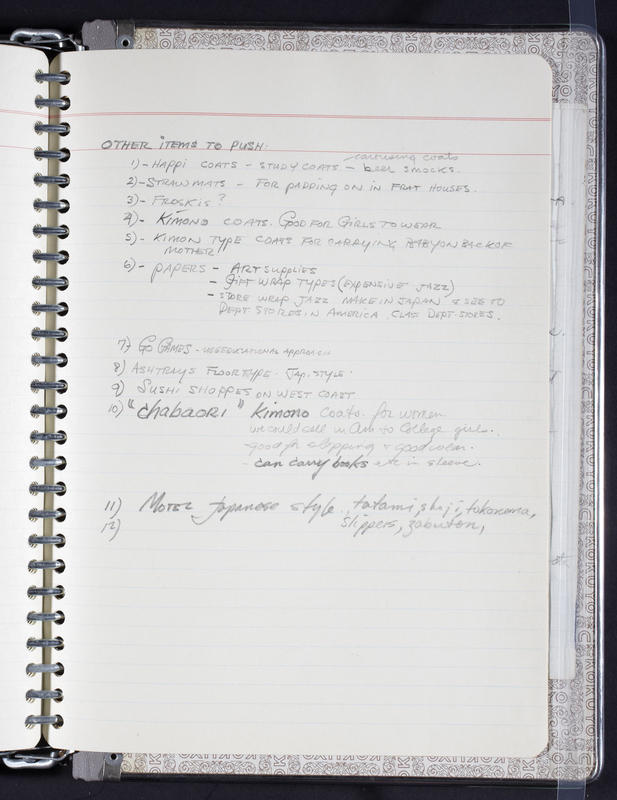 OTHER ITEMS TO PUSH.
carousing coats
1)- HAPPI COATS - STUDY COATS - beer SMOCKS.
2)- STRAW MATS - FOR PADDING ON IN FRAT HOUSES.
3)- FROSKIS?
4)- KIMONO COATS. GOOD FOR GIRLS TO WEAR
5)- KIMON TYPE COATS FOR CARRYING BABY ON BACK OF
MOTHER
6)- PAPERS - ART SUPPLIES
- GIFT WRAP TYPES (EXPENSIVE JAZZ)
- STORE WRAP JAZZ MAKE IN JAPAN & SEE TO
DEPT STORES IN AMERICA. CLASS DEPT. STORES.
7) GO GAMES - USE EDUCATIONAL APPROACH
8) ASHTRAYS FLOOR TYPE. JAP. STYLE.
9) SUSHI SHOPPES ON WEST COAST
10) "chabaori" Kimono Coats. for women
we could sell in Am to College girls.
- good for slopping + good wear.
- can carry books etc in sleeve.
11) MOTEL Japanese style. tatami, shoji, tokonoma,
12) slippers, zabuton,
KOKUYO